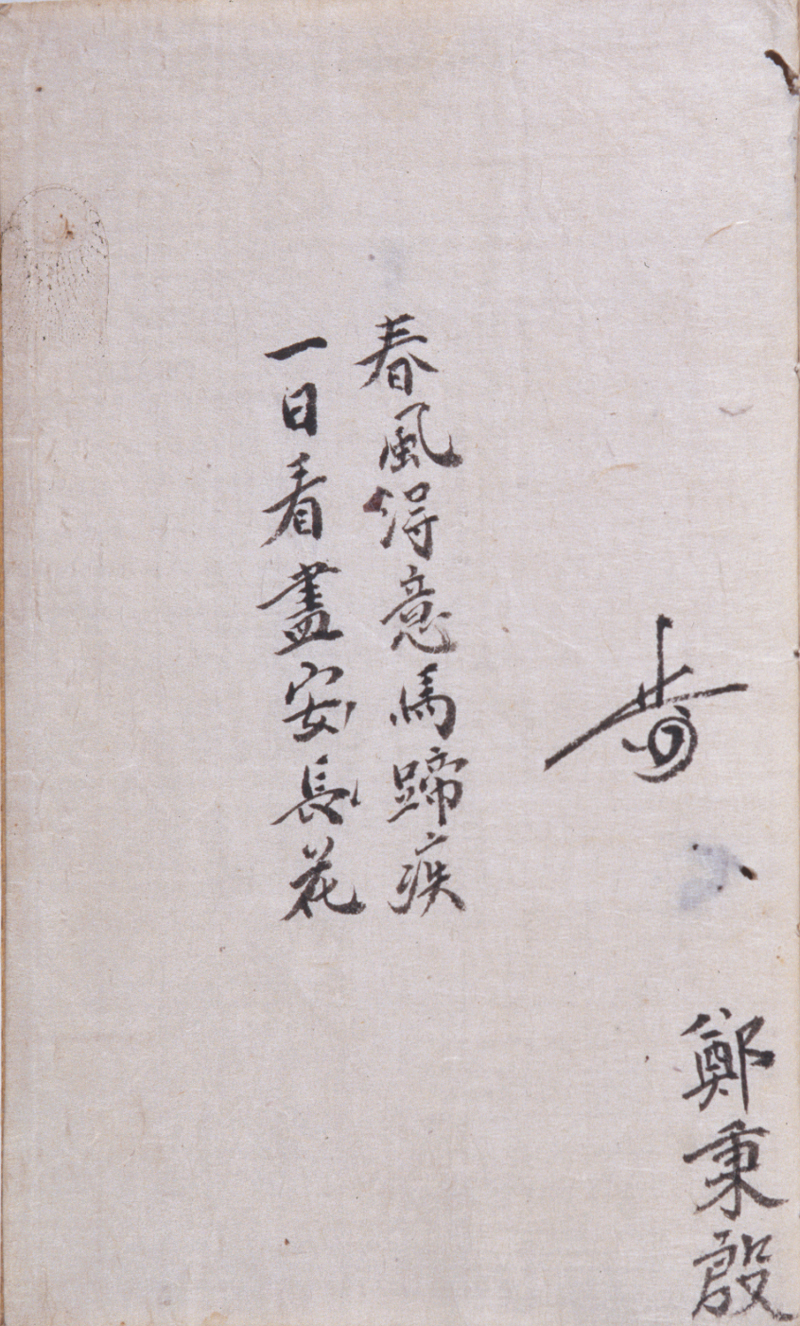 鄭秉殷
春風得意馬蹄疾
一日看盡安長花